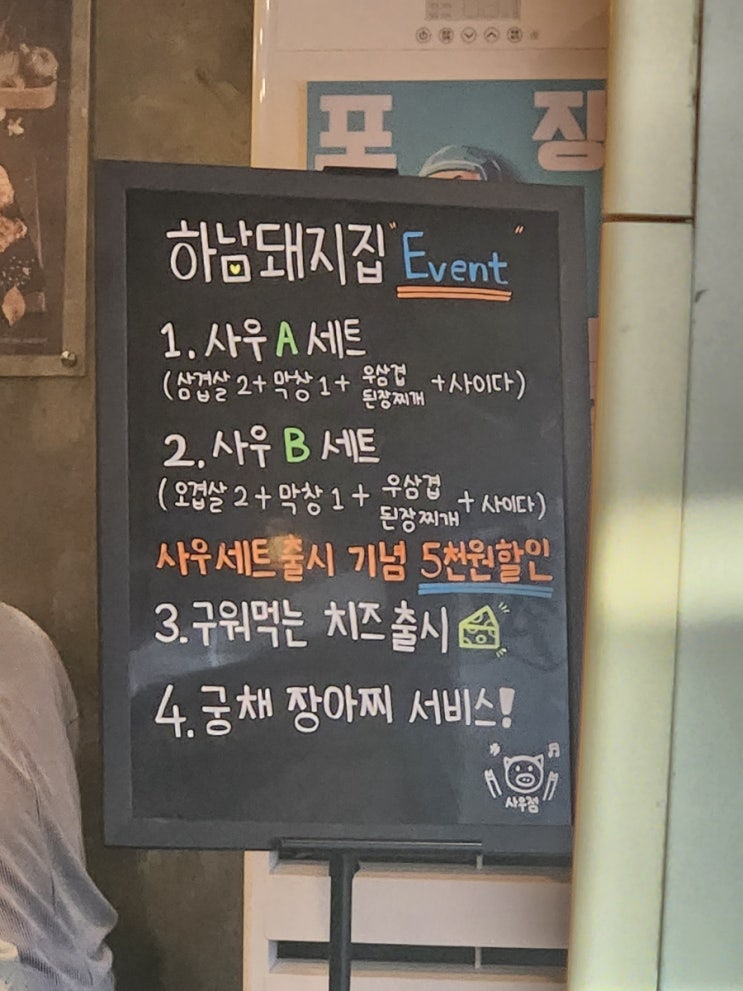 포장
하남돼지집 "Event"
1. 사우 A 세트
(삼겹살 2 + 막창 1 + 우삼겹 된장찌개 + 사이다)
2. 사우 B 세트
(오겹살 2 + 막창 1 + 우삼겹 된장찌개 + 사이다)
사우세트 출시 기념 5천원할인
3. 구워먹는 치즈 출시
4. 궁채 장아찌 서비스!
사우점